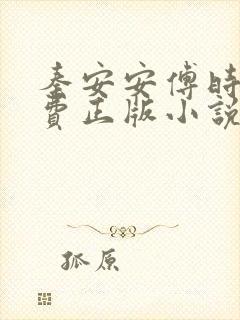 秦安安傅時
費正版小說
孤原